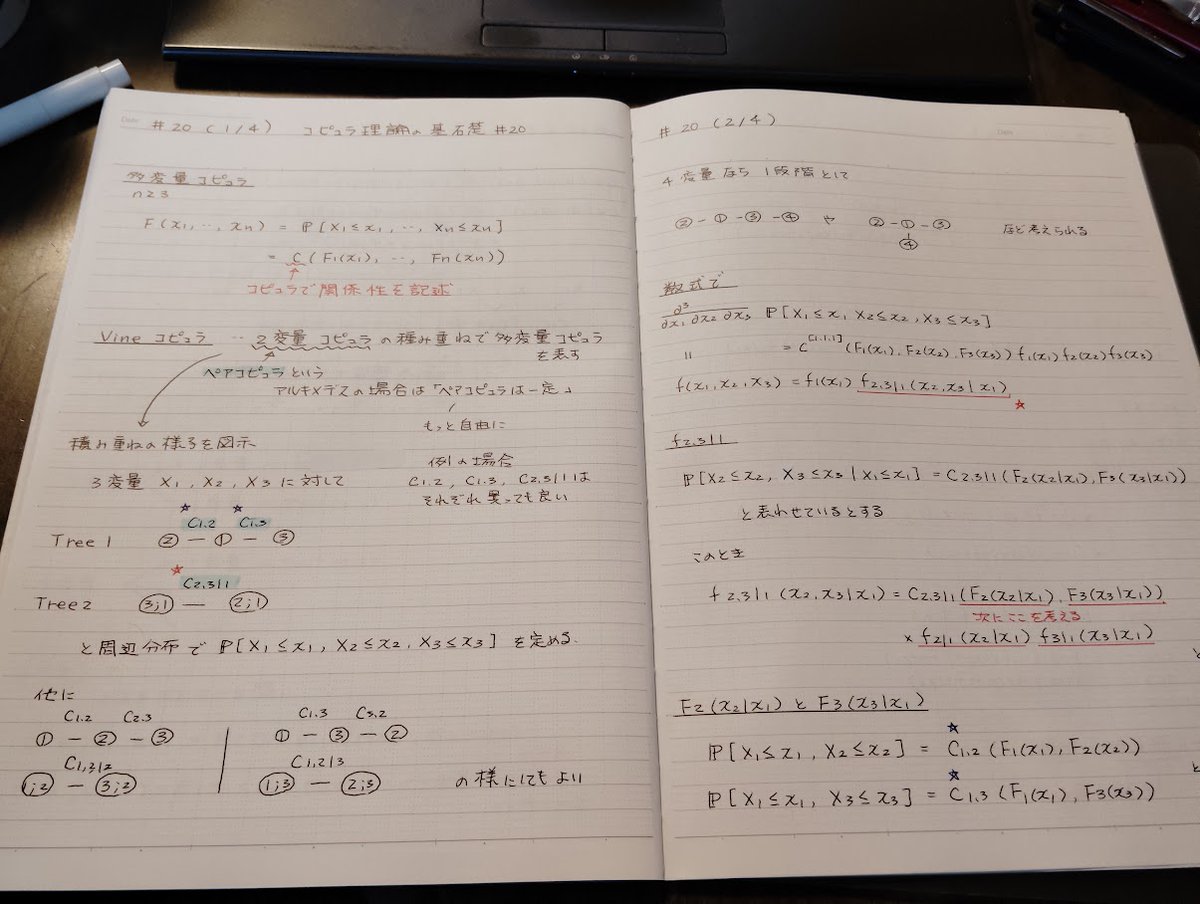 Date
#20 (1/4) コピュラ理論の基礎 #20
多変量コピュラ
n≥3
F(x1, ‥, xn) = ℙ[X1≤x1, ‥, Xn≤xn]
= C(F1(x1), ‥, Fn(xn))
コピュラで関係性を記述
Vine コピュラ ‥ 2変量コピュラの積み重ねで多変量コピュラ
を表す
ペアコピュラという
アルキメデスの場合は「ペアコピュラは一定」
もっと自由に
積み重ねの様子を図示
例1の場合
3変量 X1, X2, X3 に対して
C1,2, C1,3, C2,3|1は
それぞれ異っても良い
☆ ☆
C1,2 C1,3
Tree 1 ② — ① — ③
☆
C2,3|1
Tree 2 (3;1) — (2;1)
と周辺分布で ℙ[X1≤x1, X2≤x2, X3≤x3] を定める.
他に
C1,2 C2,3
① — ② — ③
C1,3|2
(1;2) — (3;2)
C1,3 C3,2
① — ③ — ②
C1,2|3
(1;3) — (2;3)
の様にしてもよい
#20 (2/4)
Date
4変量なら 1段階として
② - ① - ③ - ④ や ② - ① - ③
④
など考えられる
数式で
∂³/∂x1 ∂x2 ∂x3 ℙ[X1≤x1, X2≤x2, X3≤x3]
〃 = C^[1,1,1](F1(x1), F2(x2), F3(x3)) f1(x1) f2(x2) f3(x3)
f(x1, x2, x3) = f1(x1) f2,3|1(x2, x3|x1)
☆
f2,3|1
ℙ[X2≤x2, X3≤x3|X1≤x1] = C2,3|1(F2(x2|x1), F3(x3|x1))
と表わせているとする
このとき
f2,3|1(x2, x3|x1) = C2,3|1(F2(x2|x1), F3(x3|x1))
次にここを考える
× f2|1(x2|x1) f3|1(x3|x1)
F2(x2|x1) と F3(x3|x1)
☆
ℙ[X1≤x1, X2≤x2] = C1,2(F1(x1), F2(x2))
☆
ℙ[X1≤x1, X3≤x3] = C1,3(F1(x1), F3(x3))